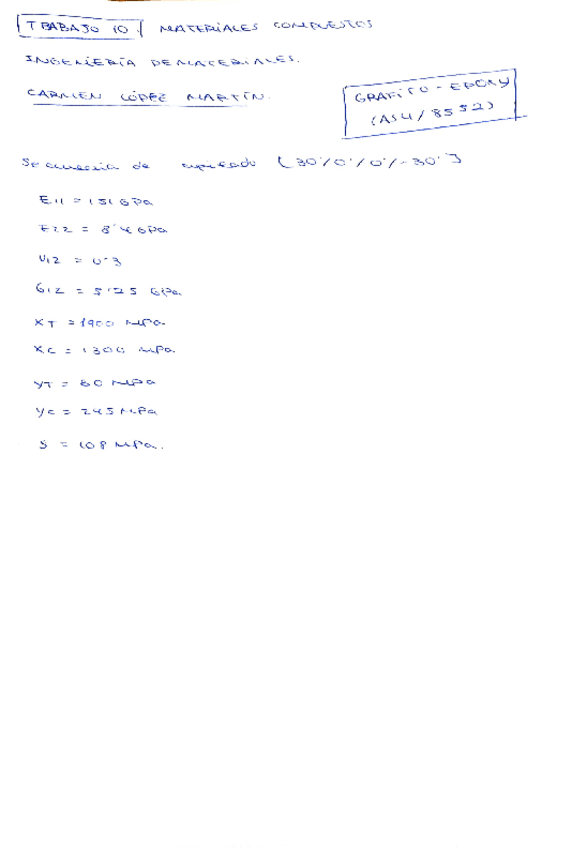 TRABAJO 10. MATERIALES COMPUESTOS
INGENIERÍA DE MATERIALES.
CARMEN LÓPEZ MARTÍN.
GRAFITO - EPOXY
(AS4/8552)
Secuencia de apilado [30º/0º/0º/-30º]
E11 = 151 GPa
E22 = 8'4 GPa
V12 = 0'3
G12 = 5'25 GPa
XT = 1900 MPa
XC = 1300 MPa
YT = 60 MPa
YC = 245 MPa
S = 108 MPa.